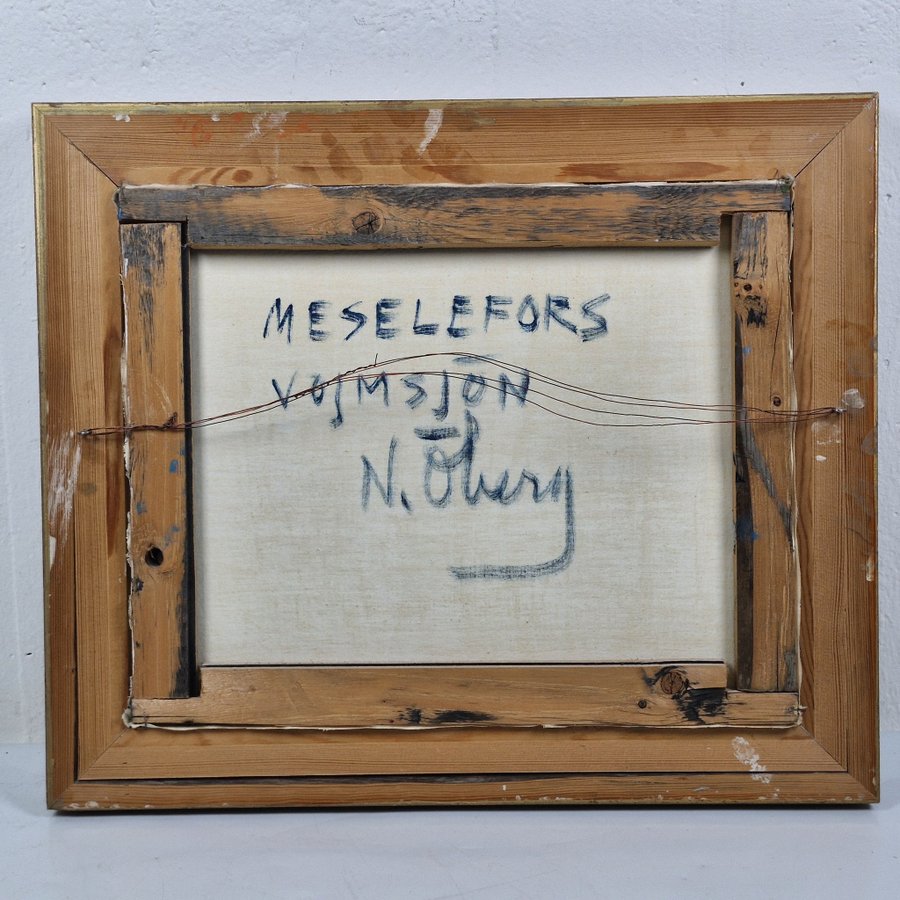 MESELEFORS
VOJMSJÖN
N. Öberg